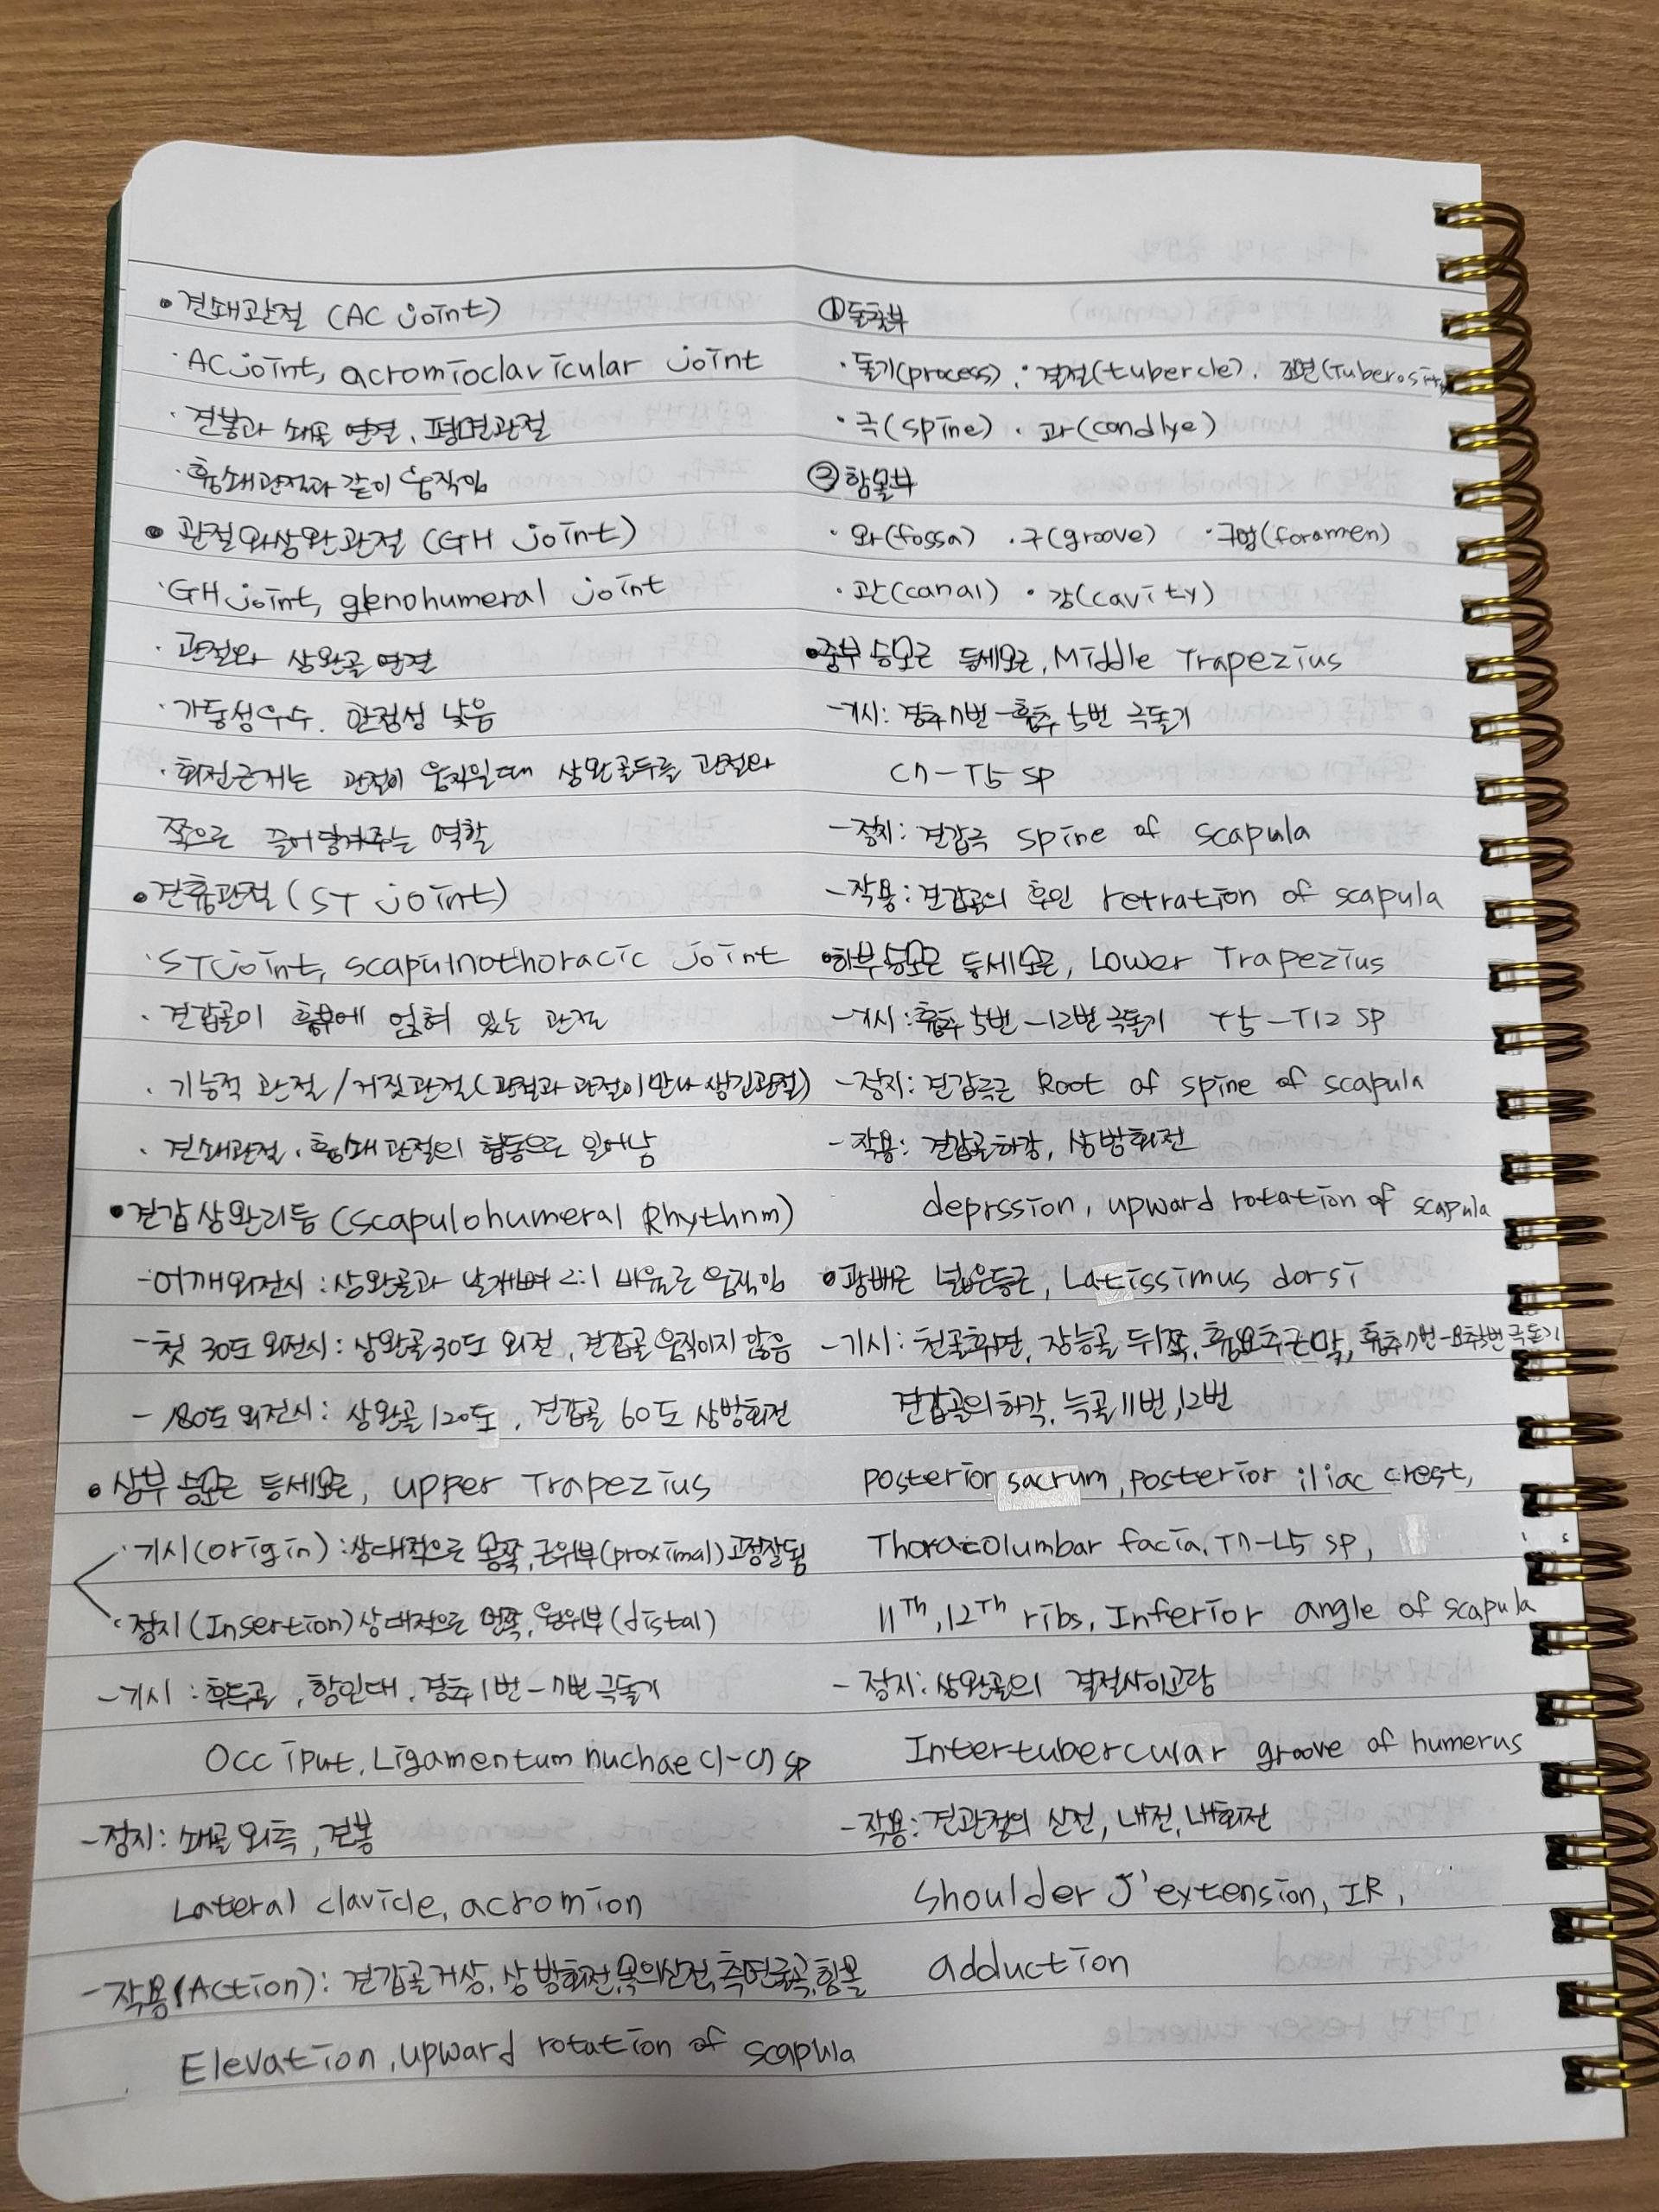 • 견쇄관절 (AC joint)
· AC joint, acromioclavicular joint
· 견봉과 쇄골 연결, 평면관절
· 흉쇄관절과 같이 움직임
• 관절와상완관절 (GH joint)
· GH joint, glenohumeral joint
· 관절와 상완골 연결
· 가동성우수. 안정성 낮음
· 회전근개는 관절이 움직일때 상완골두를 관절와
쪽으로 끌어당겨주는 역할
• 견흉관절 (ST joint)
· ST joint, scapulnothoracic joint
· 견갑골이 흉부에 얹혀 있는 관절
· 기능적 관절 / 거짓관절 (관절과 관절이 만나 생긴관절)
· 견쇄관절, 흉쇄관절의 협동으로 일어남
• 견갑상완리듬 (scapulohumeral Rhythnm)
- 어깨외전시 : 상완골과 날개뼈 2:1 비율로 움직임
- 첫 30도 외전시 : 상완골 30도 외전, 견갑골 움직이지 않음
- 180도 외전시 : 상완골 120도, 견갑골 60도 상방회전
• 상부 승모근 등세모근, upper Trapezius
· 기시(origin) : 상대적으로 몸쪽, 근위부(proximal) 고정잘됨
· 정지(Insertion) 상대적으로 먼쪽, 원위부(distal)
- 기시 : 후두골, 항인대, 경추1번-7번 극돌기
Occiput, Ligamentum nuchae C1-C7 sp
- 정지 : 쇄골 외측, 견봉
Lateral clavicle, acromion
- 작용(Action) : 견갑골거상, 상방회전, 목의신전, 측면굴곡,
Elevation, upward rotation of scapula
① 돌출부
· 돌기(process). · 결절(tubercle). 조면(Tuberosity)
· 극(spine) · 과(condlye)
② 함몰부
· 와(fossa) · 구(groove) · 구멍(foramen)
· 관(canal) · 강(cavity)
• 중부 승모근 등세모근, Middle Trapezius
- 기시 : 경추7번-흉추5번 극돌기
C7-T5 sp
- 정지 : 견갑극 spine of scapula
- 작용 : 견갑골의 후인 retration of scapula
• 하부승모근 등세모근, Lower Trapezius
- 기시 : 흉추5번-12번 극돌기 T5-T12 SP
- 정지 : 견갑극근 Root of spine of scapula
- 작용 : 견갑골하강, 상방회전
deprssion, upward rotation of scapula
• 광배근 넓은등근, Latissimus dorsi
- 기시 : 천골후면, 장능골 뒤쪽, 흉요추근막, 흉추7번-요추5번 극돌기
견갑골의하각, 늑골11번,12번
posterior sacrum, posterior iliac crest,
Thoracolumbar facia, T7-L5 sp,
11Th, 12Th ribs, Inferior angle of scapula
- 정지 : 상완골의 결절사이고랑
Intertubercular groove of humerus
- 작용 : 견관절의 신전, 내전, 내회전
Shoulder J' extension, IR,
adduction